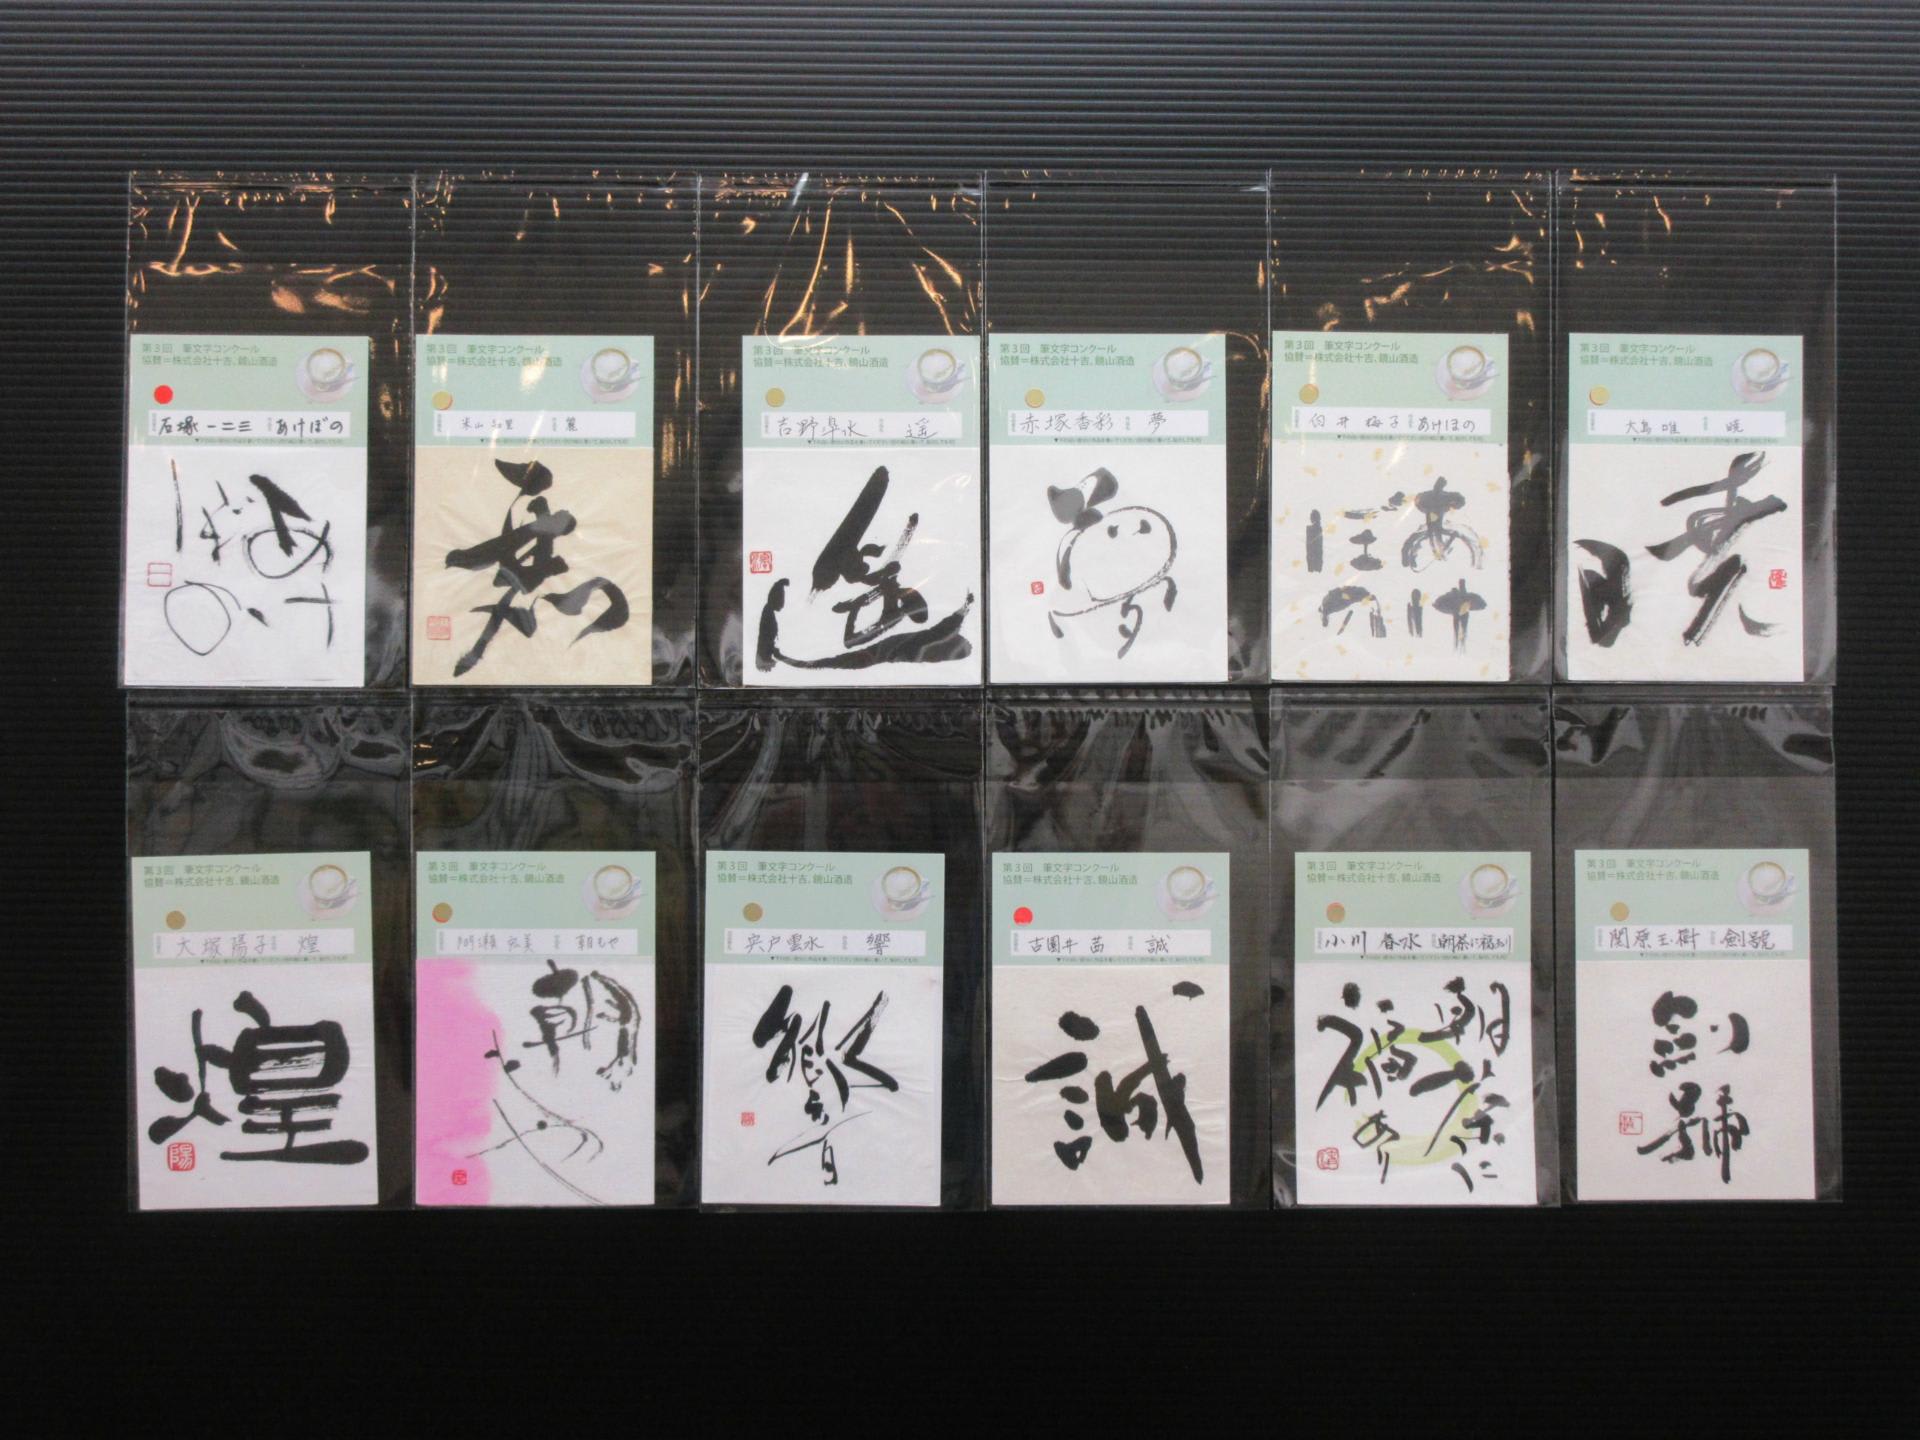 第3回 筆文字コンクール
協賛=株式会社十吉、鏡山酒造
石塚 一二三 あけぼの
あけぼの
第3回 筆文字コンクール
協賛=株式会社十吉、鏡山酒造
米山 麗
麗
第3回 筆文字コンクール
協賛=株式会社十吉、鏡山酒造
吉野阜水 遥
遥
第3回 筆文字コンクール
協賛=株式会社十吉、鏡山酒造
赤塚香彩 夢
夢
第3回 筆文字コンクール
協賛=株式会社十吉、鏡山酒造
白井 梅子 あけぼの
あけ
ぼの
第3回 筆文字コンクール
協賛=株式会社十吉、鏡山酒造
大島 唯 暁
暁
第3回 筆文字コンクール
協賛=株式会社十吉、鏡山酒造
大塚陽子 煌
煌
陽
第3回 筆文字コンクール
協賛=株式会社十吉、鏡山酒造
阿瀬 朝もや
朝もや
第3回 筆文字コンクール
協賛=株式会社十吉、鏡山酒造
宍戸雲水 響
響
第3回 筆文字コンクール
協賛=株式会社十吉、鏡山酒造
古園井 茜 誠
誠
第3回 筆文字コンクール
協賛=株式会社十吉、鏡山酒造
小川 春水 朝茶に福あり
朝茶に
福あり
第3回 筆文字コンクール
協賛=株式会社十吉、鏡山酒造
関原玉樹 劍號
劍號